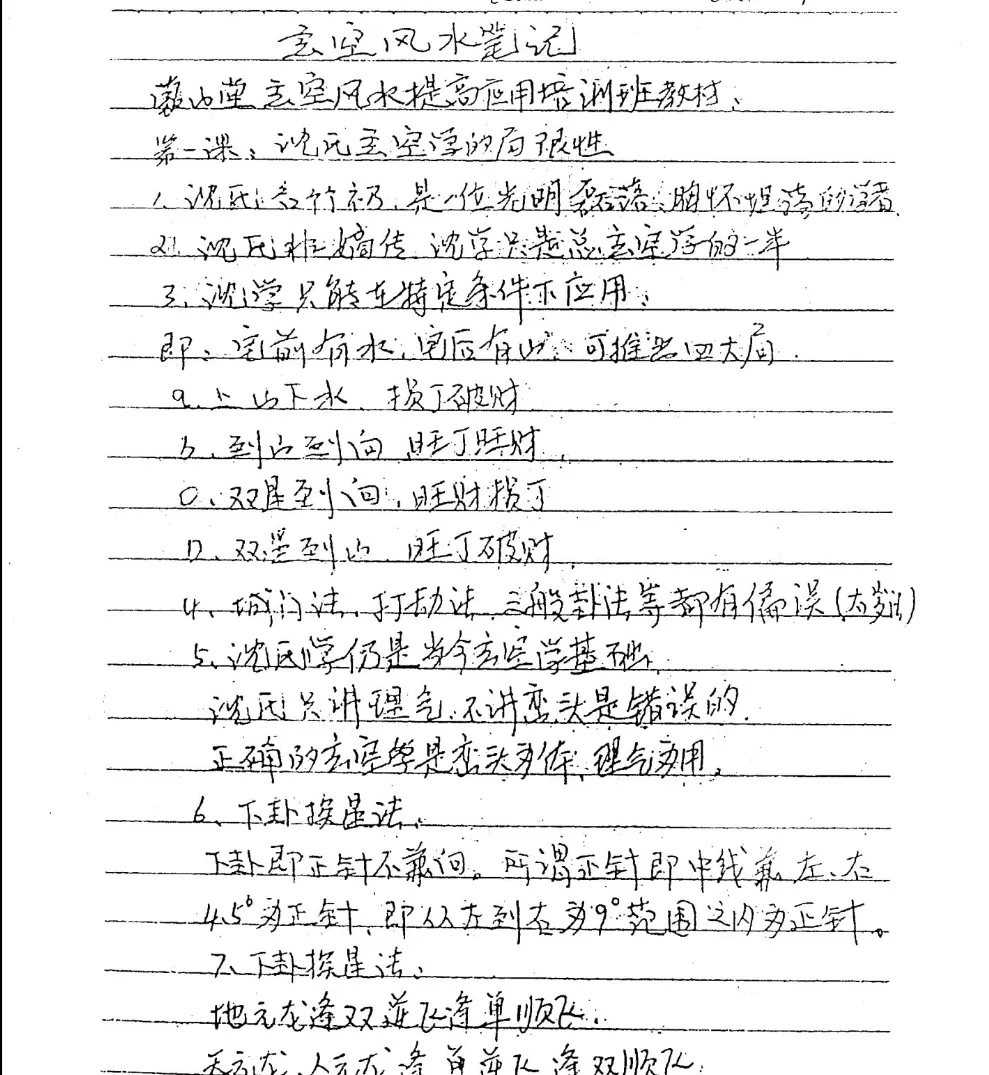 玄空风水笔记
山堂玄空风水提高应用培训班教材:
第一课:沈氏玄空学的局限性
1、沈氏:名竹礽,是一位光明磊落、胸怀坦荡的学者
2、沈氏非嫡传,沈学只是总玄空学的一半
3、沈学只能在特定条件下应用:
即:宅前有水,宅后有山,可推出四大局.
a、上山下水、损丁破财
b、到山到向,旺丁旺财,
C、双星到向,旺财损丁
D、双星到山、旺丁破财
4、城门法、打劫法、三般卦法等都有偏误(
5、沈氏学仍是当今玄空学基础.
沈氏只讲理气,不讲峦头是错误的.
正确的玄空学是峦头为体,理气为用。
6、下卦挨星法:
下卦即正针不兼向。所谓正针即中线兼左、右
4.5°为正针,即从左到右为9°范围之内为正针。
7、下卦挨星法:
地元龙逢双逆飞逢单顺飞.
天元龙、人元龙逢单逆飞逢双顺飞.